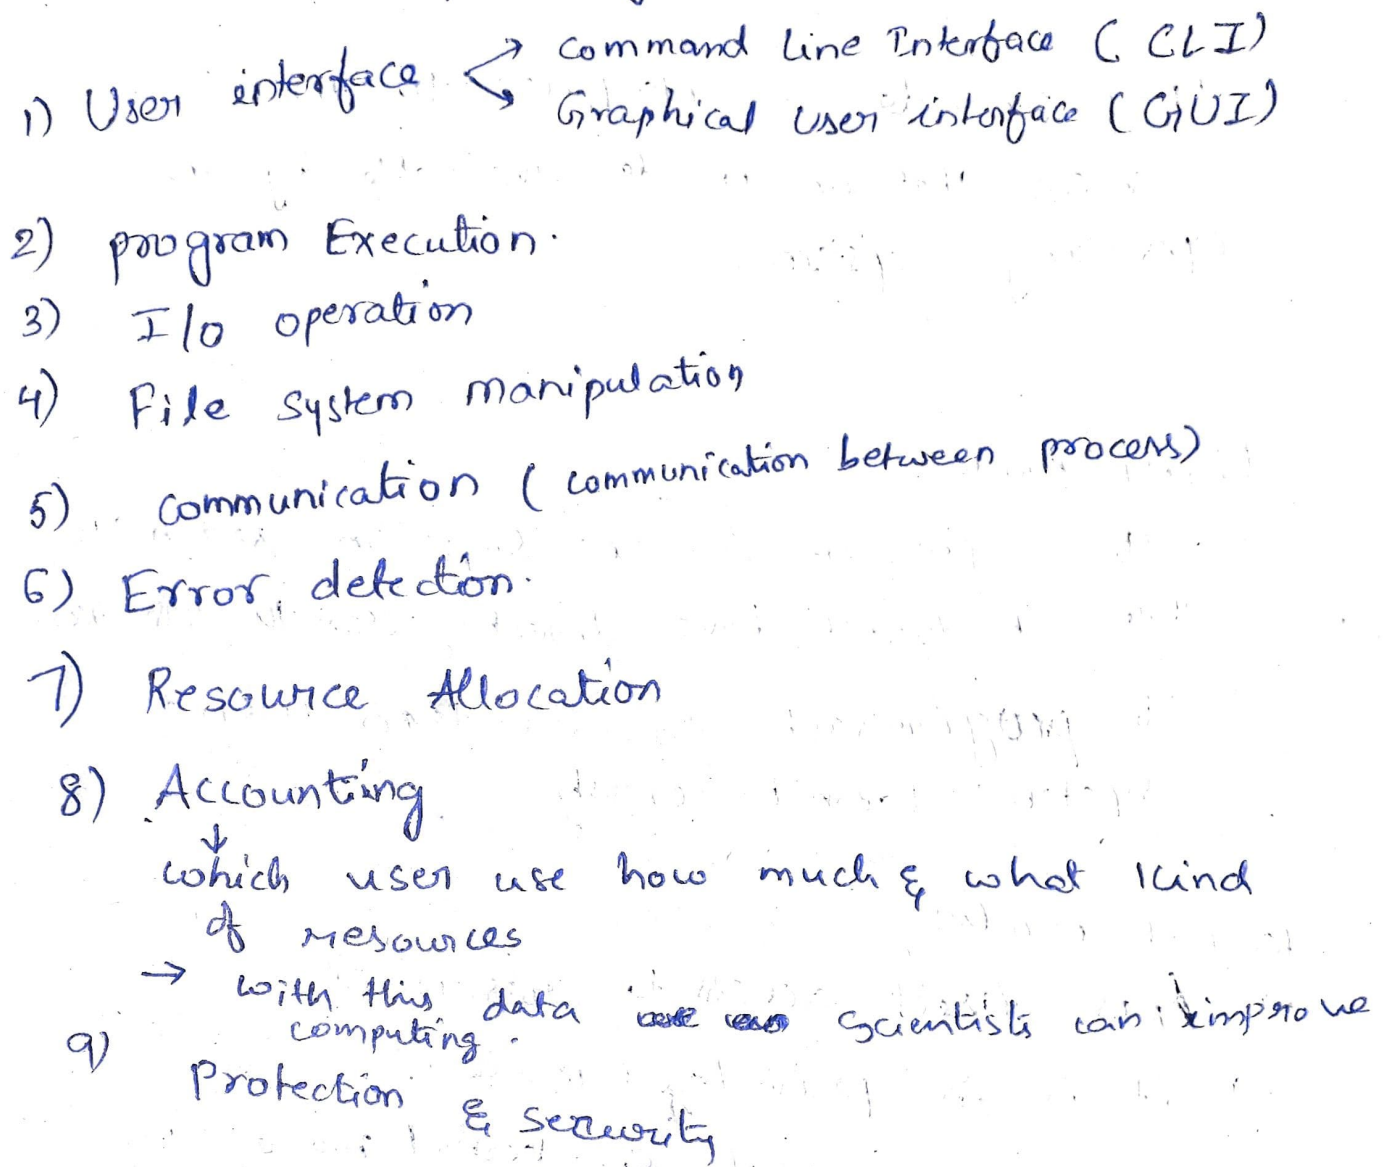 1) User interface → Command Line Interface (CLI)
→ Graphical user interface (GUI)
2) program Execution.
3) I/o operation
4) File system manipulation
5) communication (communication between process)
6) Error detection.
7) Resource Allocation
8) Accounting
↓
which user use how much & what kind
of resources
→ with this data scientists can improve
computing.
9) Protection & security